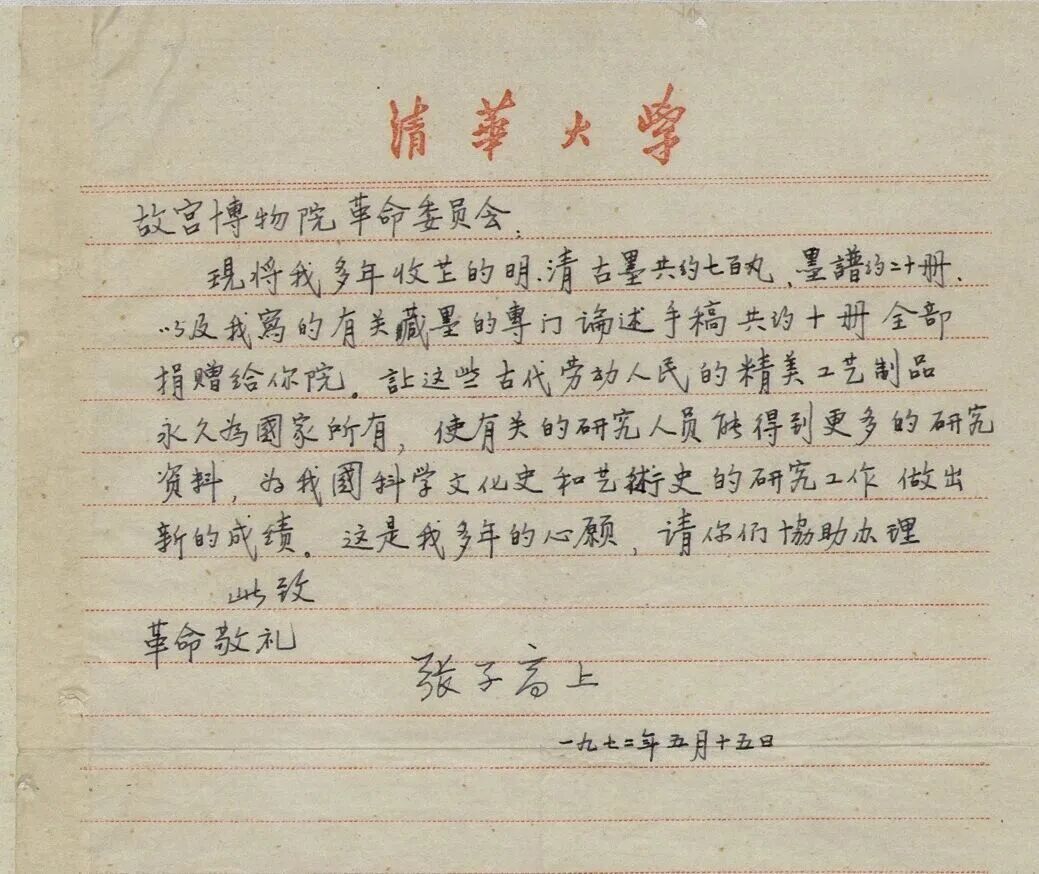 清華大学
故宫博物院革命委员会:
現将我多年收芷的明、清古墨共约七百丸、墨譜约二十册、
以及我寫的有关藏墨的專门論述手稿共约十册全部
捐赠给你院。让这些古代劳动人民的精美工艺制品
永久為國家所有，使有关的研究人员能得到更多的研究
资料，为我國科学文化史和艺術史的研究工作做出
新的成绩。这是我多年的心願，请你们協助办理
此致
革命敬礼
张子高上
一九七二年五月十五日